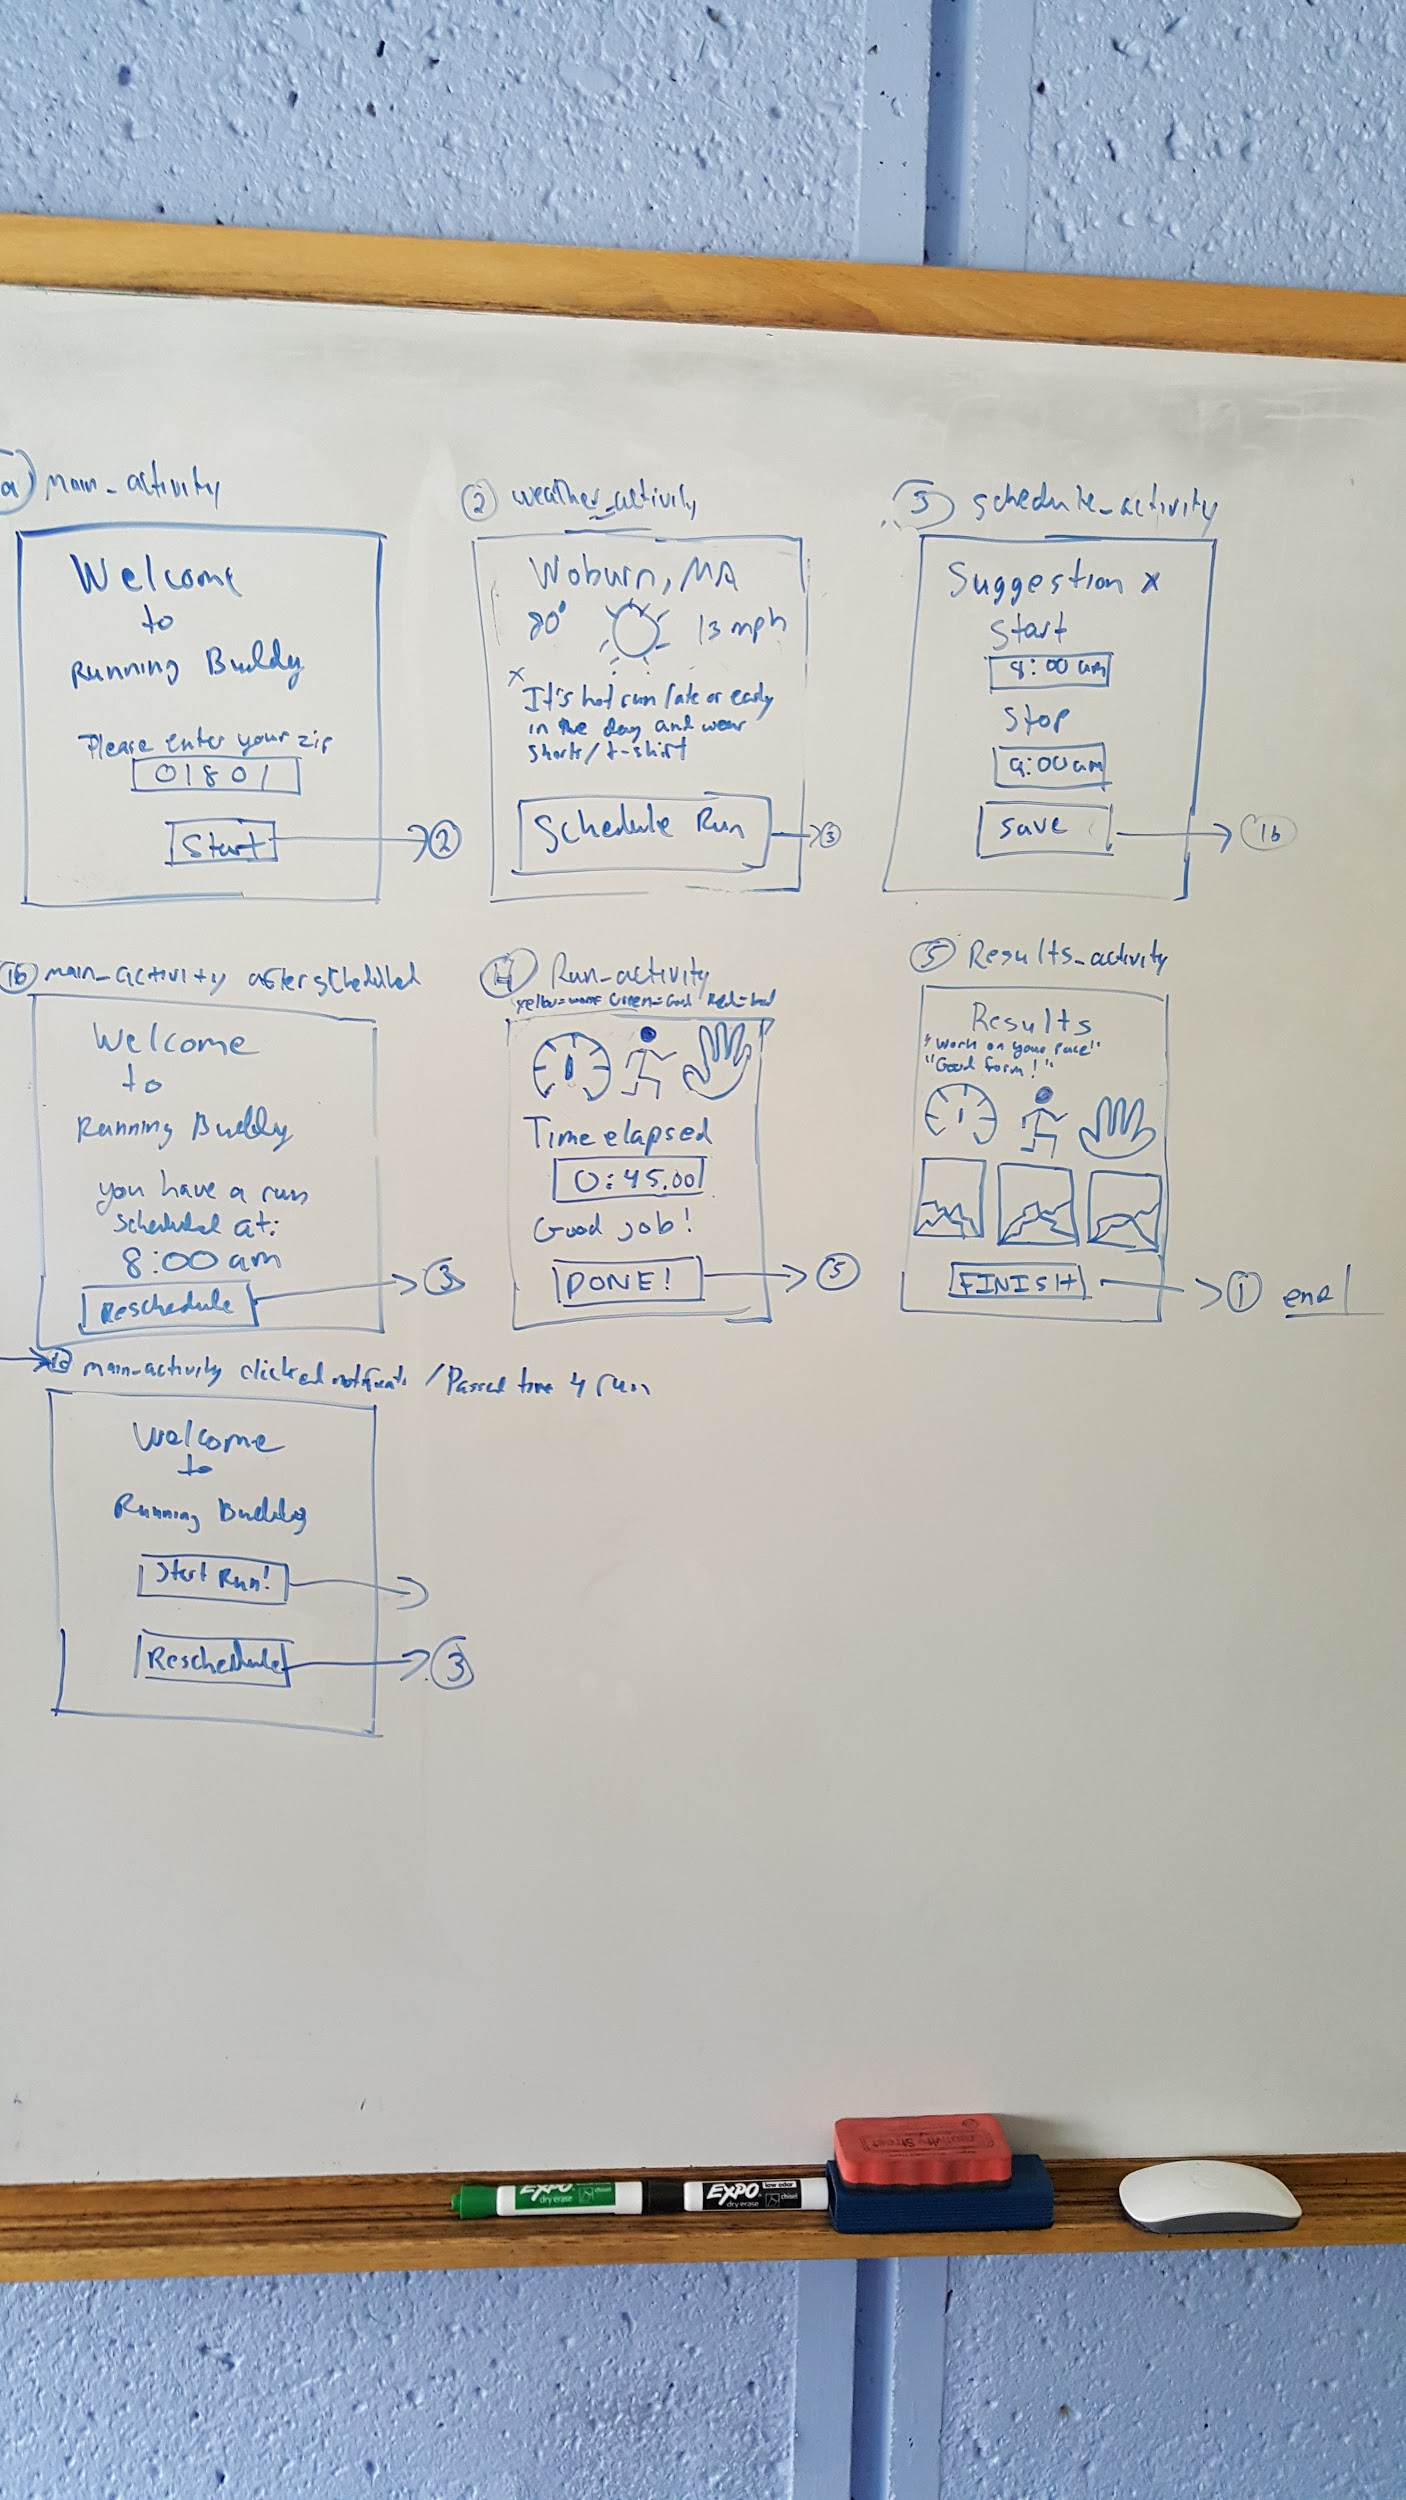 a) main_activity
Welcome
to
Running Buddy
Please enter your zip
01801
Start
2
2 weather_activity
Woburn, MA
80° 13 mph
x It's hot run late or early
in the day and wear
shorts/t-shirt
Schedule Run
3
3 schedule_activity
Suggestion x
Start
8:00 am
Stop
9:00 am
save
1b
1b main_activity after scheduled
Welcome
to
Running Buddy
you have a run
scheduled at:
8:00 am
Reschedule
3
4 Run_activity
Green=Good Red=bad
Time elapsed
0:45.00
Good job!
DONE!
5
5 Results_activity
Results
"Work on your pace"
"Good form!"
FINISH
1 end
main-activity clicked / Passed time 4 run
Welcome
to
Running Buddy
Start Run!
Reschedule
3
EXPO
dry erase
chisel
EXPO
low odor
dry erase
chisel
Creativity Street